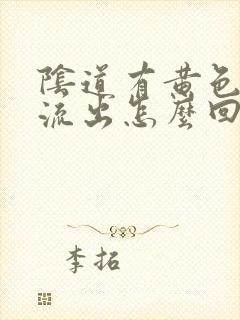 陰道有黃色
流出怎麼回
李拓